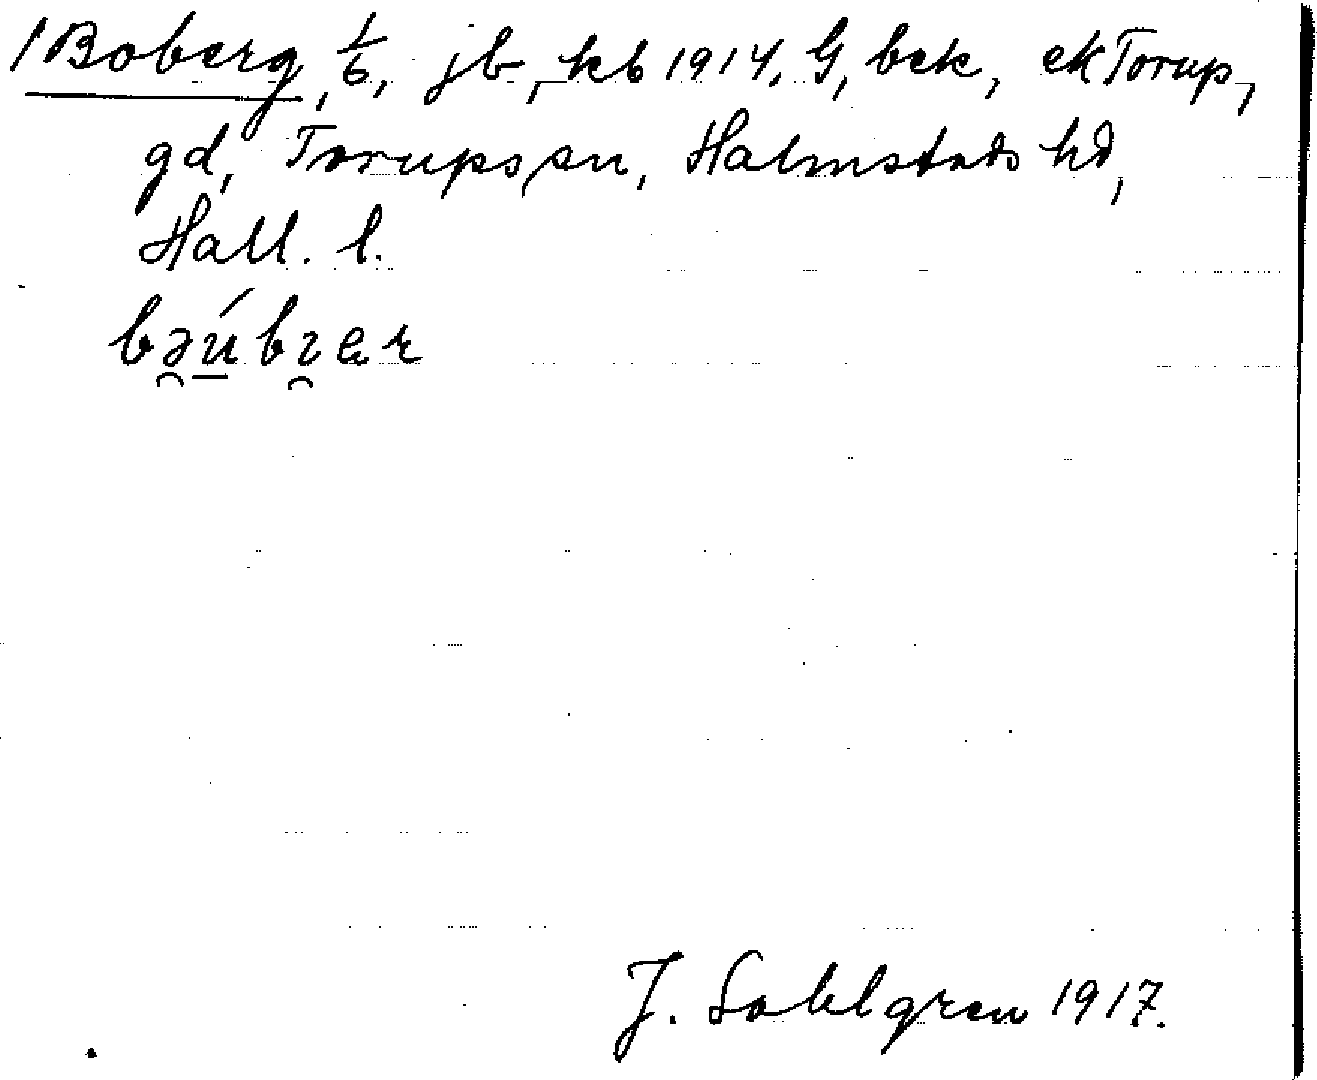 /Boberg, 1/6, jb, kb 1914, G, bek, ek Torup,
gd, Torups sn, Halmstads hd,
Hall. l.
J. Sahlgren 1917.